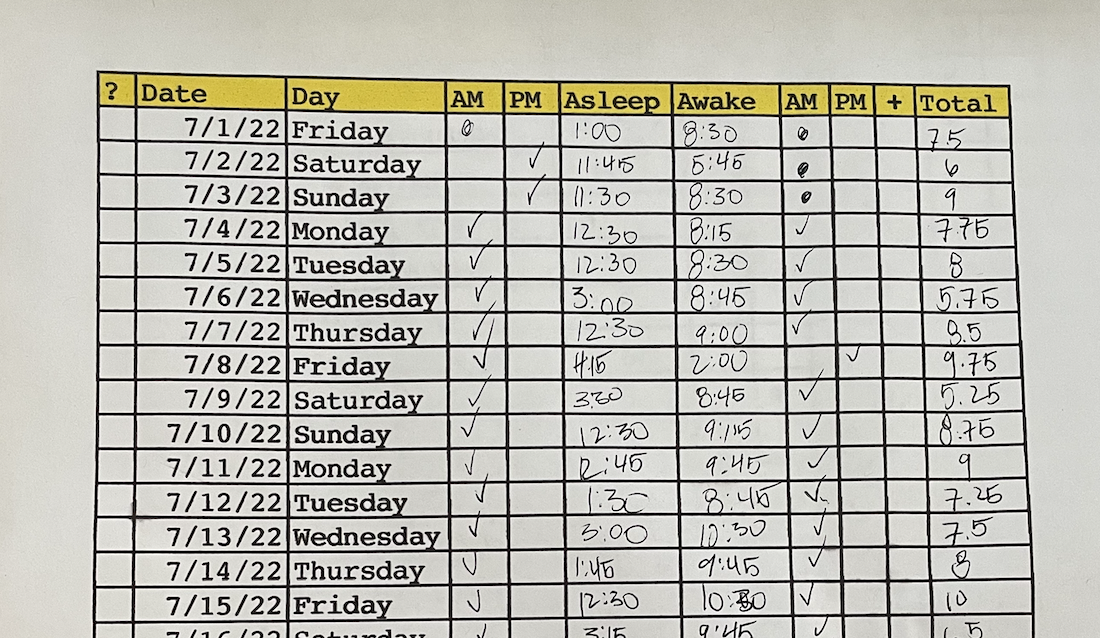 ? Date Day AM PM Asleep Awake AM PM + Total
7/1/22 Friday 1:00 8:30 7.5
7/2/22 Saturday ✓ 11:45 5:45 6
7/3/22 Sunday ✓ 11:30 8:30 9
7/4/22 Monday ✓ 12:30 8:15 ✓ 7.75
7/5/22 Tuesday ✓ 12:30 8:30 ✓ 8
7/6/22 Wednesday ✓ 3:00 8:45 ✓ 5.75
7/7/22 Thursday ✓ 12:30 9:00 ✓ 8.5
7/8/22 Friday ✓ 4:15 2:00 ✓ 9.75
7/9/22 Saturday ✓ 3:30 8:45 ✓ 5.25
7/10/22 Sunday ✓ 12:30 9:15 ✓ 8.75
7/11/22 Monday ✓ 12:45 9:45 ✓ 9
7/12/22 Tuesday ✓ 1:30 8:45 ✓ 7.25
7/13/22 Wednesday ✓ 3:00 10:30 ✓ 7.5
7/14/22 Thursday ✓ 1:45 9:45 ✓ 8
7/15/22 Friday ✓ 12:30 10:30 ✓ 10
7/16/22 Saturday ✓ 3:15 9:45 ✓ 6.5